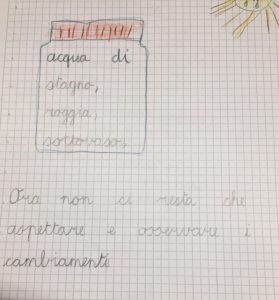 acqua di
stagno,
roggia,
sottovaso,
Ora non ci resta che
aspettare e osservare i
cambiamenti